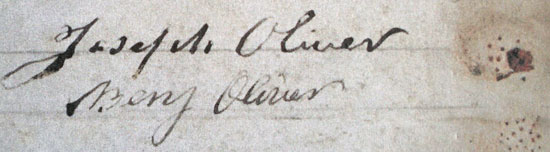 Joseph Oliver
Benj Oliver